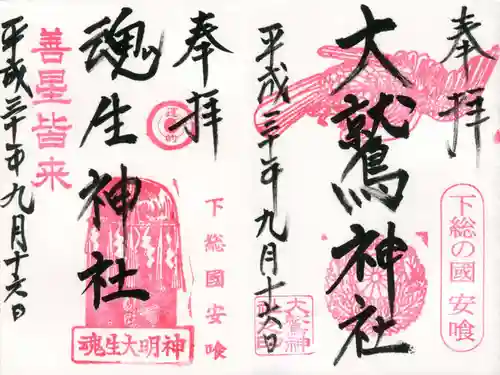 奉拝
下総の國 安喰
大鷲神社
大鷲神
平成三十年九月十六日
奉拝
下総國安喰
魂生神社
魂生大明神
善星皆来
平成三十年九月十六日